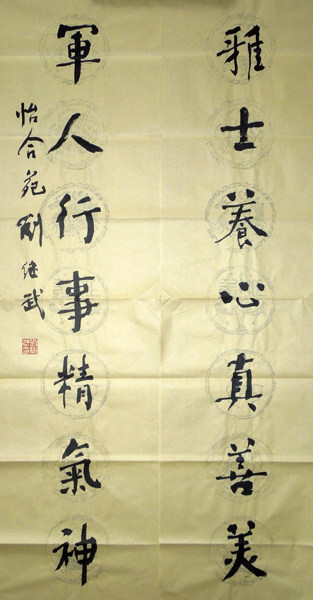 雅士養心真善美
軍人行事精氣神
怡合苑劉继武